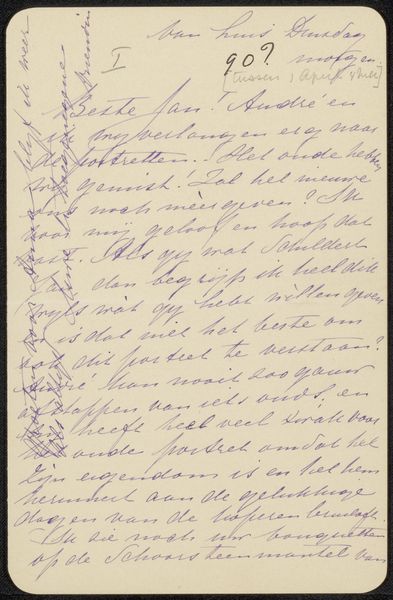 van huis Dinsdag
morgen.
90?
I
[tussen 1 April &
Beste Jan! André en
ik wy verlangen erg naar
de portretten! Het oude heb
wy gemist! Zal het nieuwe
ons noch méér geven? Ik
voor mij geloof en hoop dat
Als gy wat schildert
Jan dan begryp ik heel dik
wyls wàt gy hebt willen geven
is dat niet het beste om
ook dit portret te verstaan?
André kan nooit zoo gauw
afstappen van iets ouds, en
heeft heel veel zwak voor
het oude portret omdat het
zijn eigendom is en het hem
herinnert aan de gelukkige
dagen van de koperen bruiloft.
Ik zie noch uw bouquetten
op de Schoorsteenmantel van
Groeten voor Anna blyf ik meer
als altyd Uwe
Vriendin